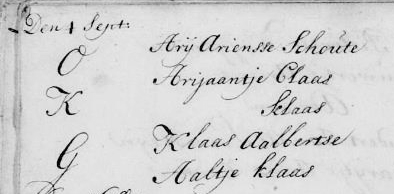 Den 4 Sept:
O Arij Ariensse Schoute
Arijaantje Claas
K Klaas
Klaas Aalbertse
G Aaltje klaas